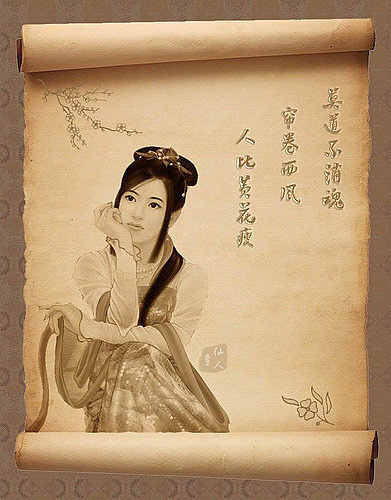 莫道不消魂
帘卷西风
人比黄花瘦
仙人